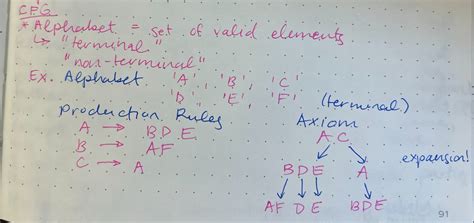 CFG
* Alphabet = set of valid elements
↳ "terminal"
"non-terminal"
Ex. Alphabet 'A', 'B', 'C'
'D', 'E', 'F'
(terminal)
Production Rules Axiom
A → BDE AC
B → AF
C → A
expansion!
BDE A
AF D E BDE
91